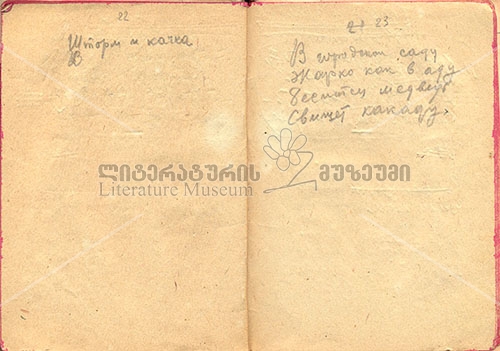 22
Шторм и качка
В
21 23
В городском саду
Жарко как в аду
Бесятся медведи
Свищет какаду.
ᲚᲘᲢᲔᲠᲐᲢᲣᲠᲘᲡ ᲛᲣᲖᲔᲣᲛᲘ
Literature Museum